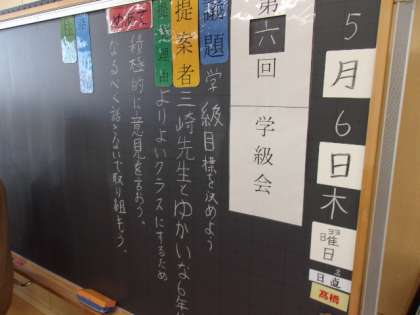 5月6日木曜日
日直
高橋
第六回 学級会
議題 学級目標を決めよう
提案者 三崎先生とゆかいな6年
提案理由 よりよいクラスにするため
めあて 積極的に意見を言おう。
なるべく話さないで取り組もう。